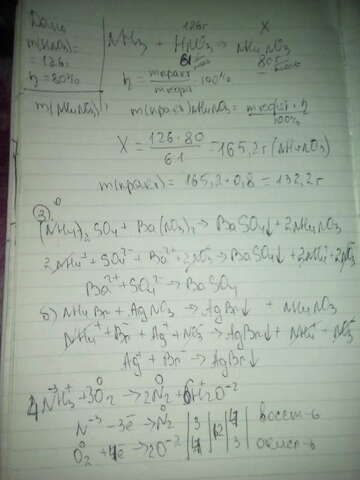 Дано
m(HNO₃)=
= 126г
η = 80%
m(NH₄NO₃)
126г X
NH₃ + HNO₃ → NH₄NO₃
61 80г
η = mпракт / mтеор · 100%
m(практ)NH₄NO₃ = mтеор · η / 100%
X = 126·80 / 61 = 165,2г (NH₄NO₃)
m(практ) = 165,2·0,8 = 132,2г
③
(NH₄)₂SO₄ + Ba(NO₃)₂ → BaSO₄↓ + 2NH₄NO₃
2NH₄⁺ + SO₄²⁻ + Ba²⁺ + 2NO₃⁻ → BaSO₄↓ + 2NH₄⁺ + 2NO₃⁻
Ba²⁺ + SO₄²⁻ → BaSO₄
б) NH₄Br + AgNO₃ → AgBr↓ + NH₄NO₃
NH₄⁺ + Br⁻ + Ag⁺ + NO₃⁻ → AgBr↓ + NH₄⁺ + NO₃⁻
Ag⁺ + Br⁻ → AgBr↓
4N⁻³H₃⁺ + 3O₂⁰ → 2N₂⁰ + 6H₂⁺O⁻²
N⁻³ - 3ē → N₂⁰ | 3 | 12 | 4 | восст-ь
O₂⁰ + 4ē → 2O⁻² | 4 | | 3 | окисл-ь